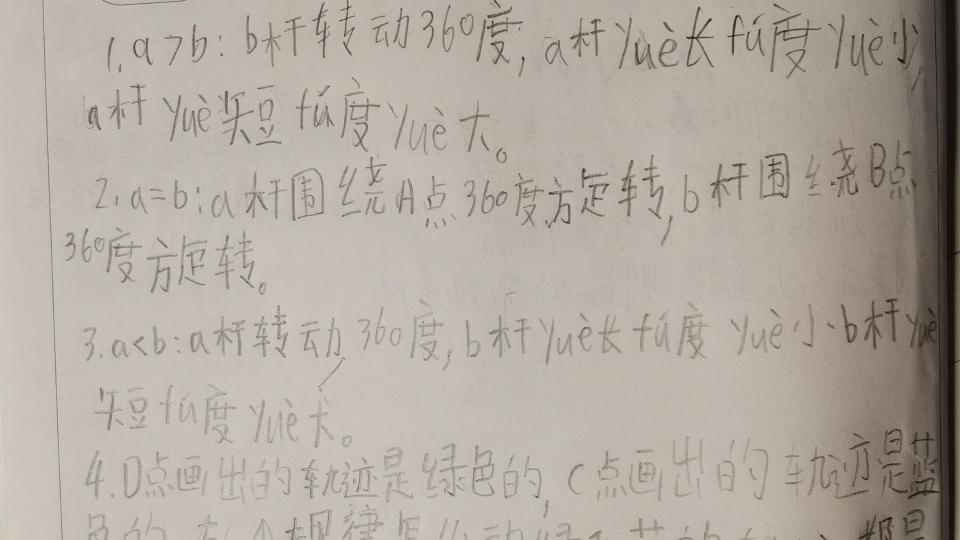 1. a>b: b杆转动360度, a杆yuè长fú度yuè小,
a杆yuè短fú度yuè大。
2. a=b: a杆围绕A点360度方定转, b杆围绕B点
360度方定转。
3. a<b: a杆转动360度, b杆yuè长fú度yuè小. b杆yuè
短fú度yuè大。
4. D点画出的轨迹是绿色的, C点画出的轨迹是蓝
色的